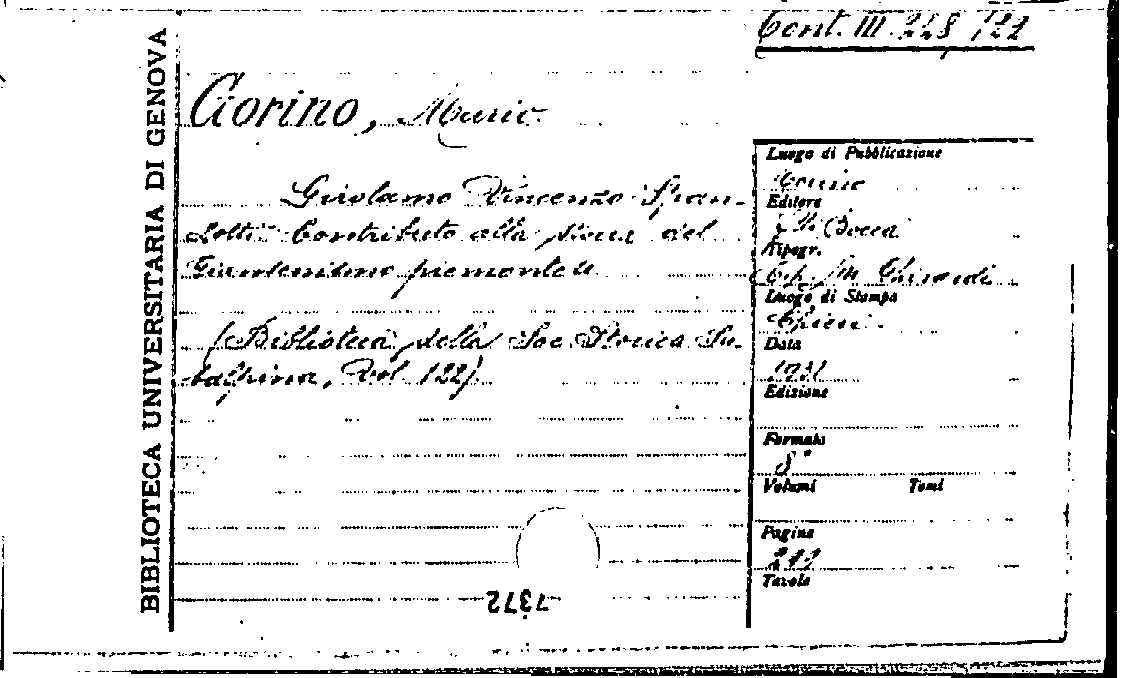 Cont. III. 228/122
BIBLIOTECA UNIVERSITARIA DI GENOVA
Gorino, Mario.
Girolamo Vincenzo Span-
zotti. Contributo alla storia del
Giansenismo piemontese
(Biblioteca della Soc. Storica Su-
balpina, Vol. 122)
Luogo di Pubblicazione
Torino
Editore
F.lli Bocca
Tipogr.
Tip. M. Ghirardi
Luogo di Stampa
Chieri.
Data
1931
Edizione
Formato
8°
Volumi Tomi
Pagine
Tavole
7372